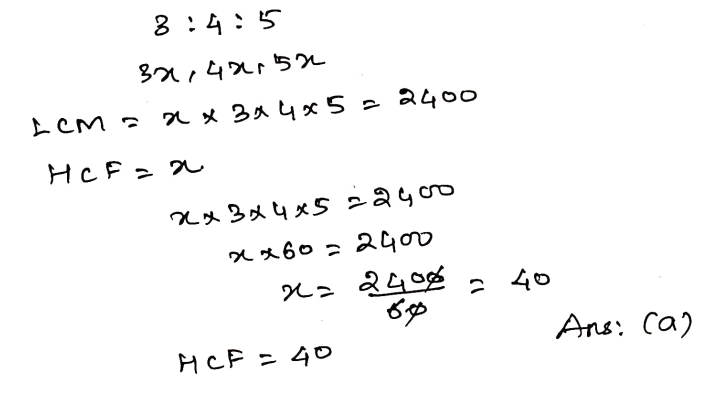 3 : 4 : 5
3x, 4x, 5x
LCM = x × 3 × 4 × 5 = 2400
HCF = x
x × 3 × 4 × 5 = 2400
x × 60 = 2400
x = 2400/60 = 40
Ans: (a)
HCF = 40